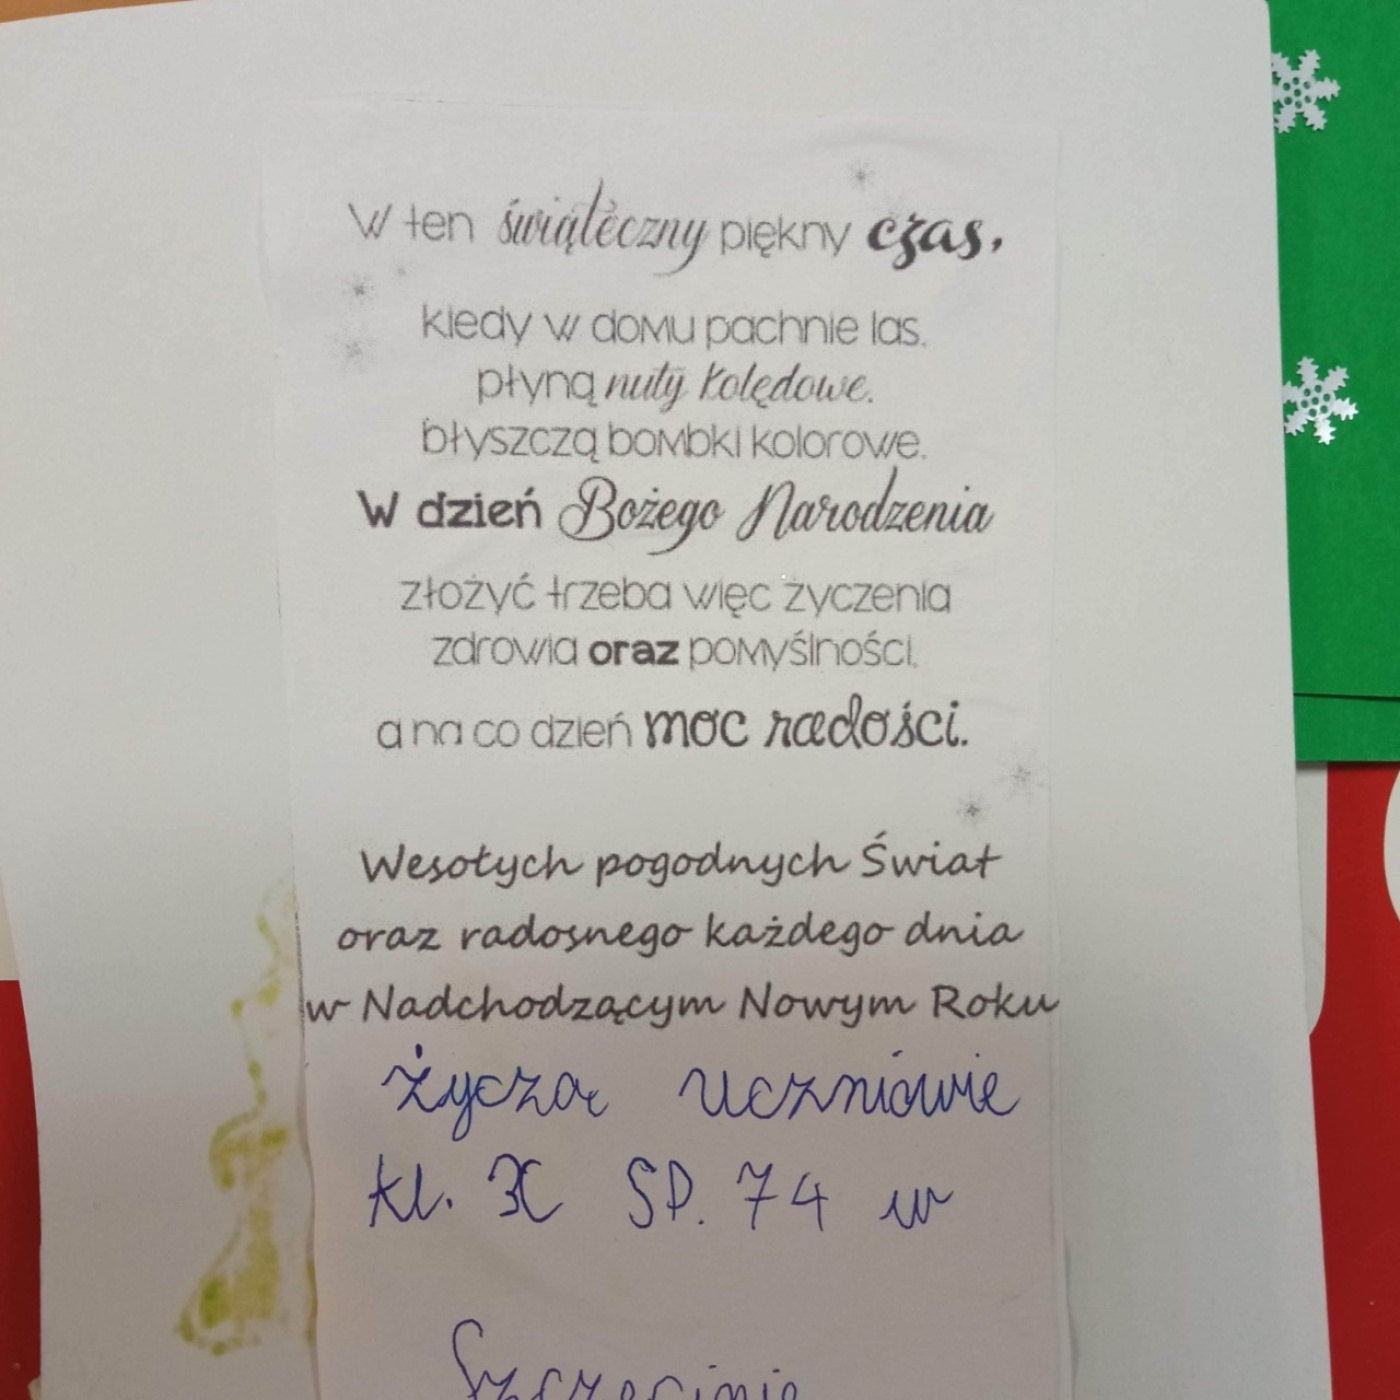 W ten świąteczny piękny czas,
kiedy w domu pachnie las,
płyną nuty kolędowe,
błyszczą bombki kolorowe.
W dzień Bożego Narodzenia
złożyć trzeba więc życzenia
zdrowia oraz pomyślności,
a na co dzień moc radości.
Wesołych pogodnych Świat
oraz radosnego każdego dnia
w Nadchodzącym Nowym Roku
życzą Uczniowie
kl. 3C SP. 74 w
Szczecinie